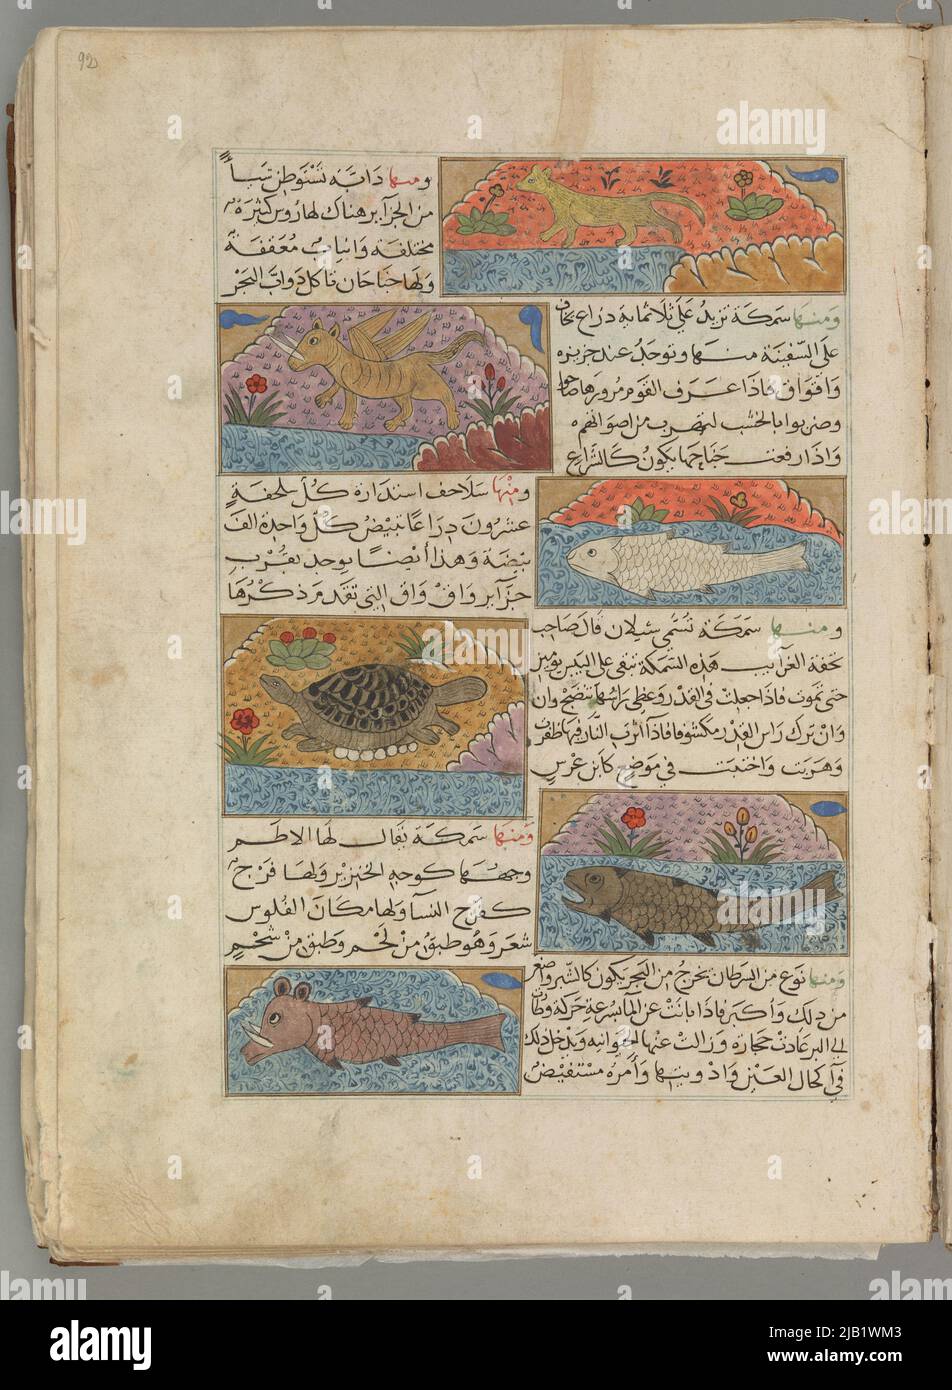 92
ومنها دابة تستوطن شيأ
من الجزاير هناك لها روس كثيرة
مختلفة وانياب معقفة
ولها جناحان تاكل دواب البحر
ومنها سمكة تزيد على ثلاثماية ذراع يخاف
على السفينة منها وتوجد عند جزيرة
واقواق فاذا عرف القوم مرورها صاحوا
وضربوا بالخشب لتهرب من اصواتهم
واذا رفعت جناحها يكون كالشراع
ومنها سلاحف استدارة كل سلحفة
عشرون ذراعا تبيض كل واحدة الف
بيضة وهذا أيضا يوجد بقرب
جزآير واق واق التي تقدم ذكرها
ومنها سمكة تسمى شيلان قال صاحب
تحفة الغرآيب هذه السمكة تبقى على اليبس يومين
حتى تموت فاذا جعلت في القدر وغطى راسها تنضج وان
وان ترك راس القدر مكشوفا فاذا أثرت النار فيها طفرت
وهربت واختبت في موضع كابن عرس
ومنها سمكة يقال لها الاطم
وجهها كوجه الخنزير ولها فرج
كفرج النسآ ولها مكان الفلوس
شعر وهو طبق من لحم وطبق من شحم
ومنها نوع من السرطان يخرج من البحر يكون كالشبر واصغر
من ذلك وأكبر فاذا بانت عن المآ بسرعة حركة وصارت
الى البر عادت حجارة وزالت عنها الحيوانية ويدخل ذلك
في آكحال العين وادويتها وأمره مستفيض
alamy
a
Image ID: 2JB1WM3
www.alamy.com